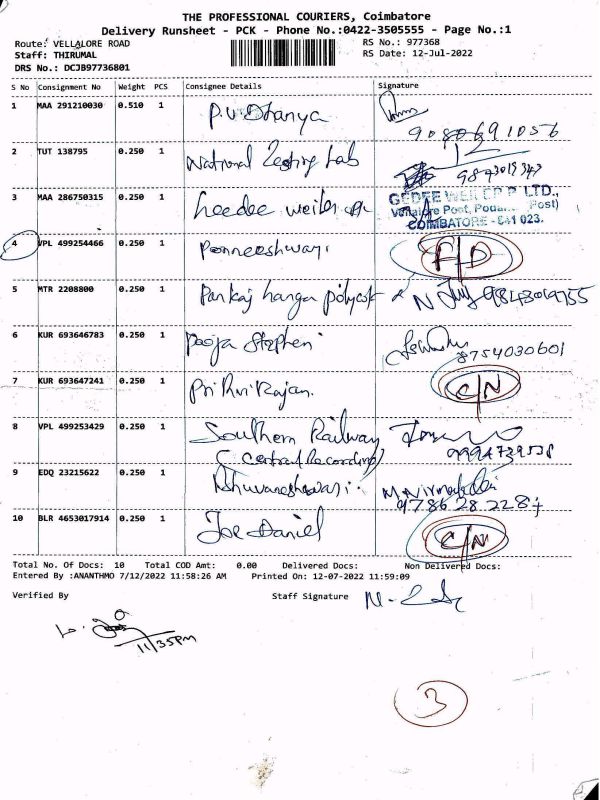 THE PROFESSIONAL COURIERS, Coimbatore
Delivery Runsheet - PCK - Phone No.:0422-3505555 - Page No.:1
Route: VELLALORE ROAD
RS No.: 977368
Staff: THIRUMAL
RS Date: 12-Jul-2022
DRS No.: DCJB97736801
S No Consignment No Weight PCS Consignee Details Signature
1 MAA 291210030 0.510 1 P.V. Dhanya
9080691056
2 TUT 138795 0.250 1 National Testing Lab
3 MAA 286750315 0.250 1
GEDEE WEILER P LTD.,
COIMBATORE - 641 023.
4 VPL 499254466 0.250 1 Ponneeshwari F/D
5 MTR 2208800 0.250 1 Pankaj
6 KUR 693646783 0.250 1 Pooja Stephen
8754030601
7 KUR 693647241 0.250 1 C/N
8 VPL 499253429 0.250 1 Southern Railway
(Central Recording)
9 EDQ 23215622 0.250 1
10 BLR 4653017914 0.250 1 Joe Daniel C/N
Total No. Of Docs: 10 Total COD Amt: 0.00 Delivered Docs: Non Delivered Docs:
Entered By :ANANTHMO 7/12/2022 11:58:26 AM Printed On: 12-07-2022 11:59:09
Verified By Staff Signature
11/35PM
3